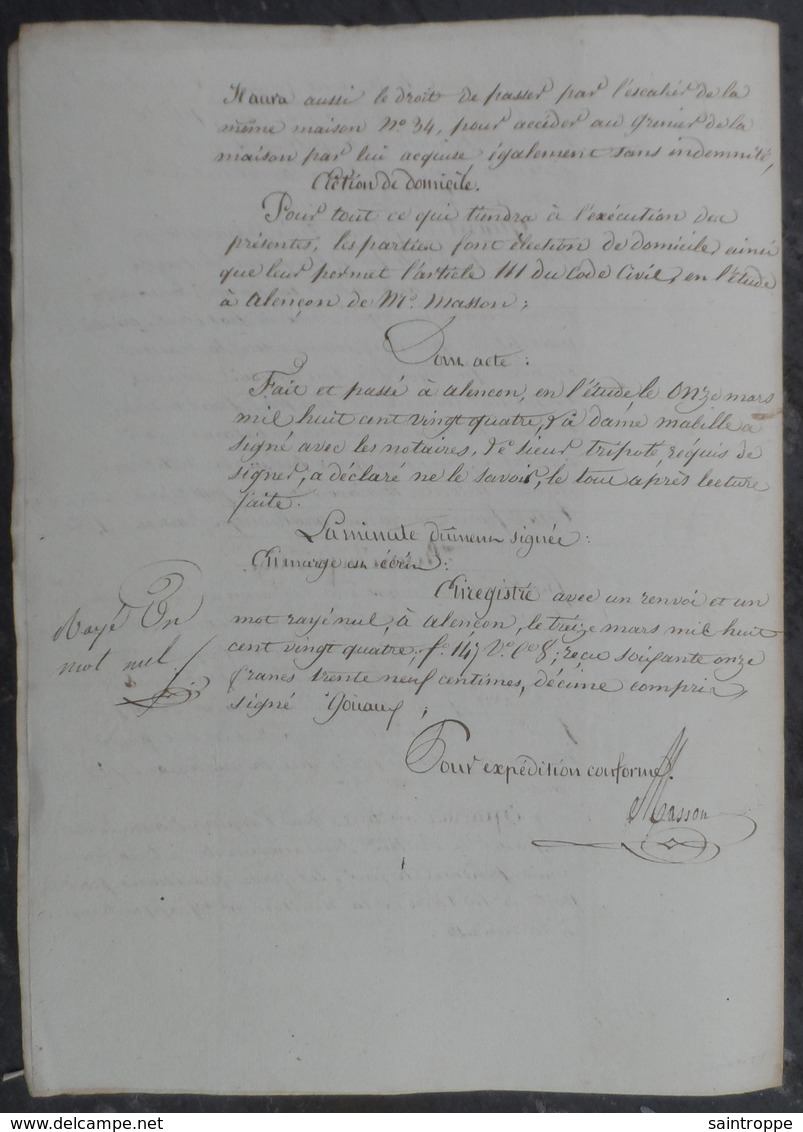 Il aura aussi le droit de passer par l'escalier de la
même maison N.° 34, pour accéder au grenier de la
maison par lui acquise, également sans indemnité,
Election de domicile.
Pour tout ce qui tiendra à l'exécution des
présentes, les parties font élection de domicile, ainsi
que leur permet l'article 111 du Code Civil, en l'étude
à alençon de M.e Masson;
Dont acte:
Fait et passé à alençon, en l'étude, le Onze mars
mil huit cent vingt quatre, la dame mabille a
signé avec les notaires, le sieur tripoté, réquis de
signer, a déclaré ne le savoir, le tout après lecture
faite.
La minute dûment signée:
En marge est écrit:
Enregistré avec un renvoi et un
mot rayé nul, à alençon, le treize mars mil huit
cent vingt quatre, f.° 147 V.° C.e 8; reçu soixante onze
francs trente neuf centimes, décime compris
signé
Rayé Un
mot nul.
Pour expédition conforme.
Masson
saintroppe
www.delcampe.net